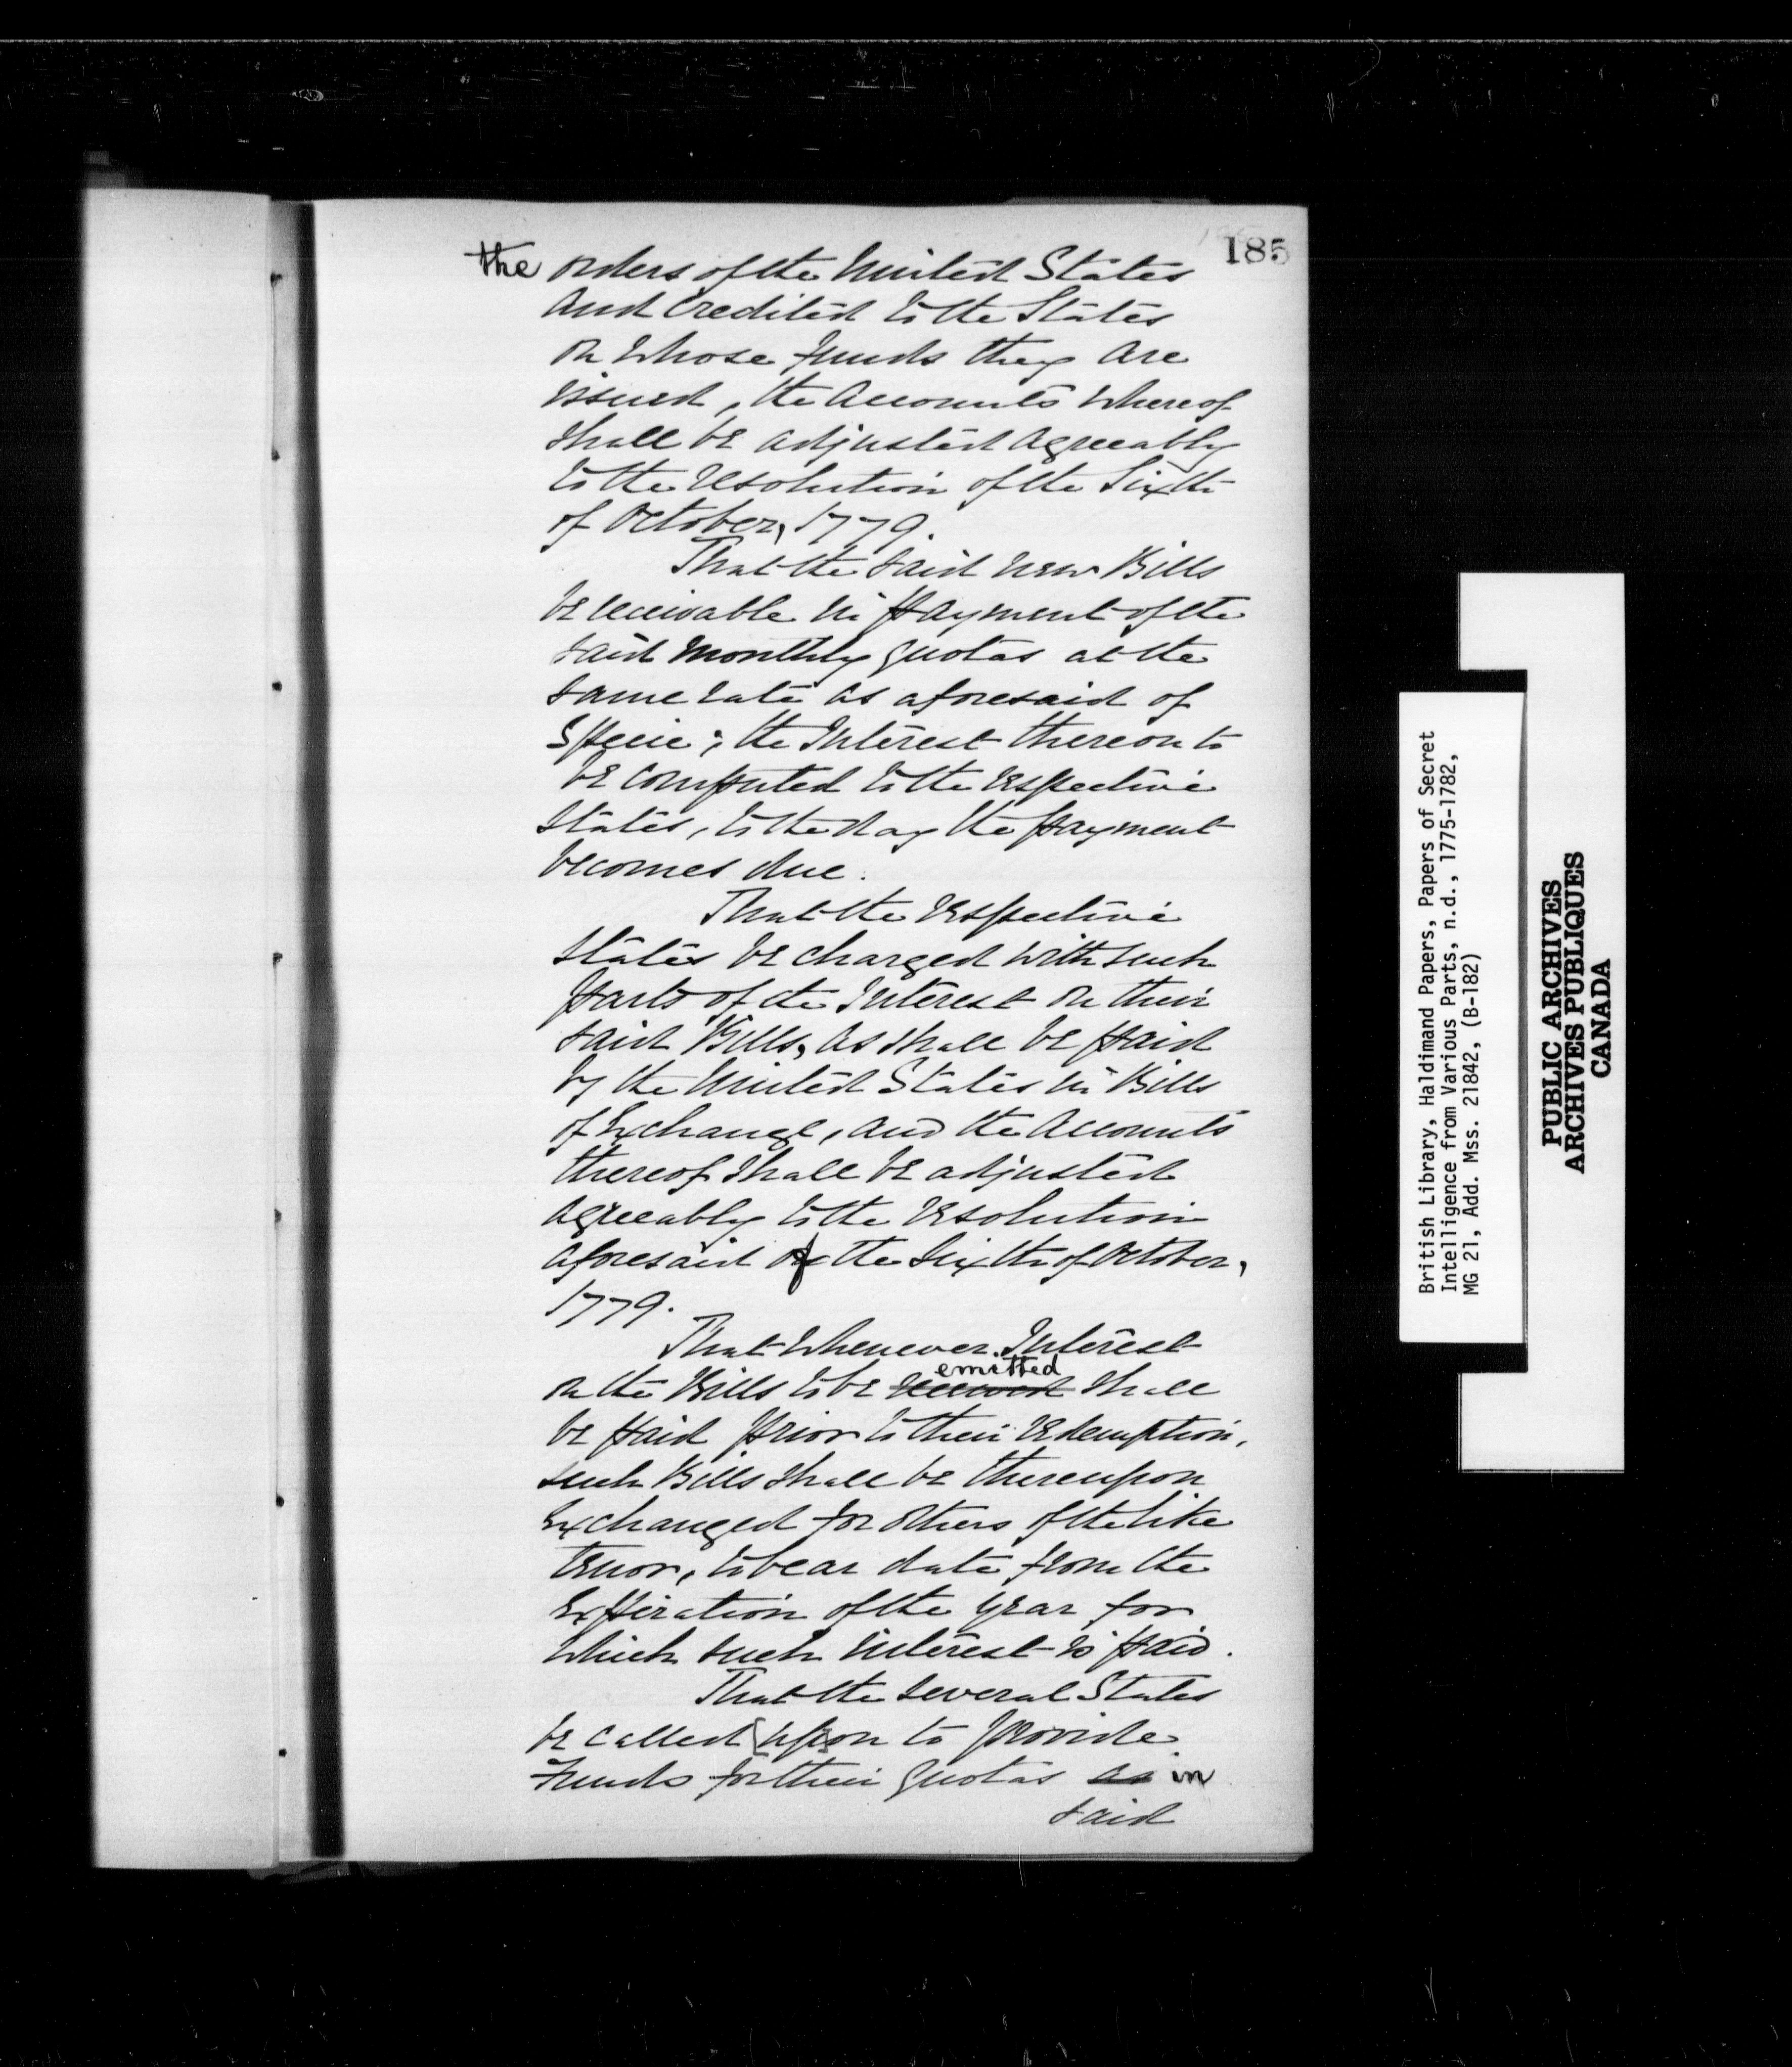 185
the orders of the United States
and credited to the States
on whose funds they are
issued, the Accounts whereof
shall be adjusted agreeably
to the resolution of the Sixth
of October, 1779.
That the said new Bills
be receivable in payment of the
said monthly quotas at the
same rate as aforesaid of
Specie; the Interest thereon to
be computed to the respective
States, to the day the payment
becomes due.
That the respective
States be charged with such
parts of the Interest on their
said Bills, as shall be paid
by the United States in Bills
of Exchange, and the Accounts
thereof shall be adjusted
agreeably to the resolution
aforesaid of the Sixth of October,
1779.
That whenever Interest
emitted
on the Bills to be shall
be paid prior to their redemption,
such Bills shall be thereupon
exchanged for others of the like
tenor, to bear date from the
expiration of the year for
which such interest is paid.
That the several States
be called upon to provide
Funds for their quotas as in
said
British Library, Haldimand Papers, Papers of Secret
Intelligence from Various Parts, n.d., 1775-1782,
MG 21, Add. Mss. 21842, (B-182)
PUBLIC ARCHIVES
ARCHIVES PUBLIQUES
CANADA